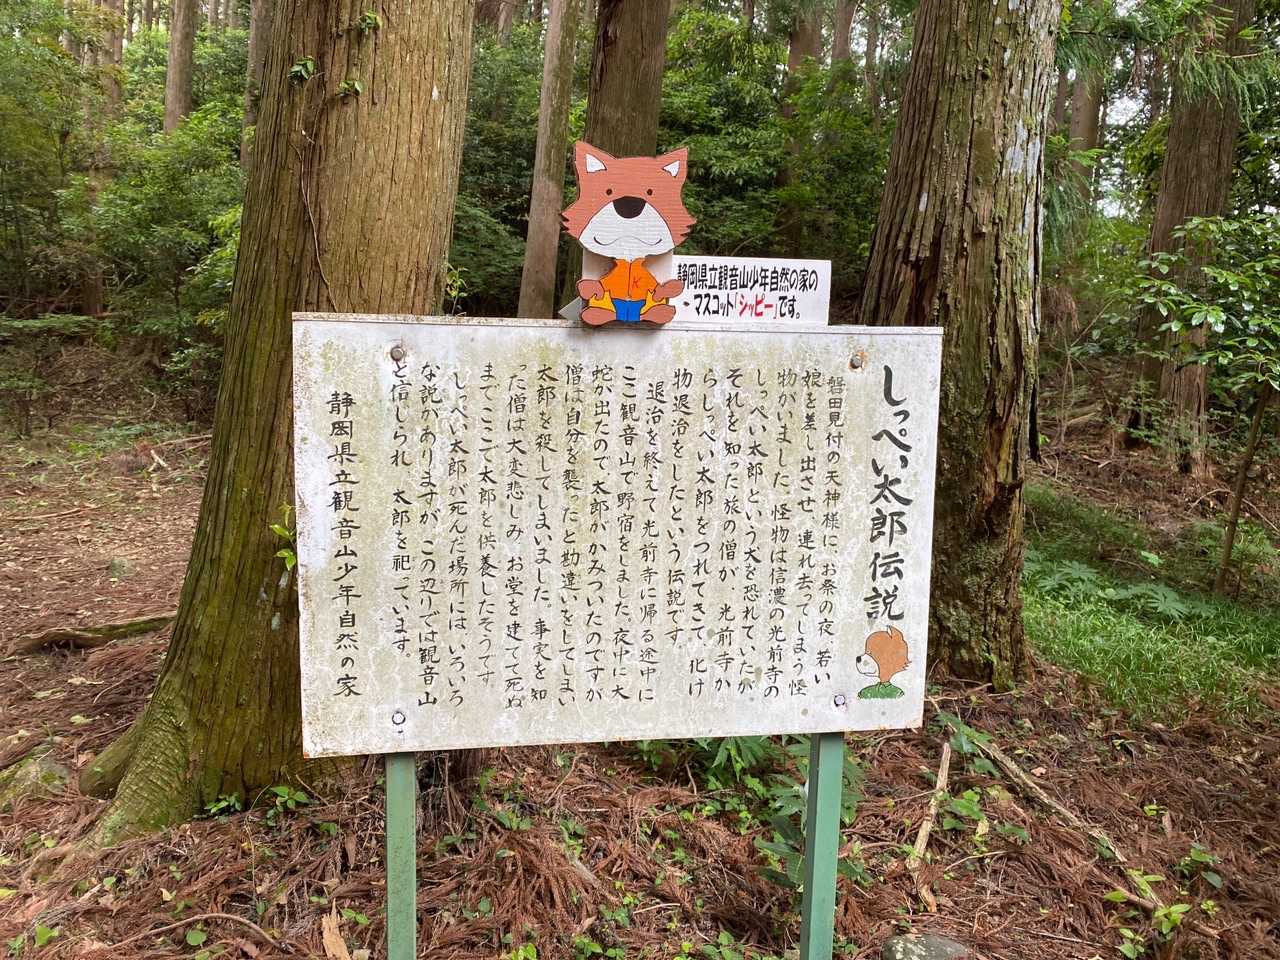 静岡県立観音山少年自然の家の
マスコット「シッピー」です。
しっぺい太郎伝説
磐田見付の天神様に、お祭の夜、若い
娘を差し出させ 連れ去ってしまう怪
物がいました。怪物は信濃の光前寺の
しっぺい太郎という犬を恐れていたが
それを知った旅の僧が、光前寺か
らしっぺい太郎をつれてきて、化け
物退治をしたという伝説です。
退治を終えて光前寺に帰る途中に
ここ観音山で野宿をしました。夜中に大
蛇が出たので太郎がかみついたのですが
僧は自分を襲ったと勘違いをしてしまい
太郎を殺してしまいました。事実を知
った僧は大変悲しみ お堂を建てて死ぬ
までここで太郎を供養したそうです
しっぺい太郎が死んだ場所には、いろいろ
な説がありますが、この辺りでは観音山
と信じられ 太郎を祀っています。
静岡県立観音山少年自然の家